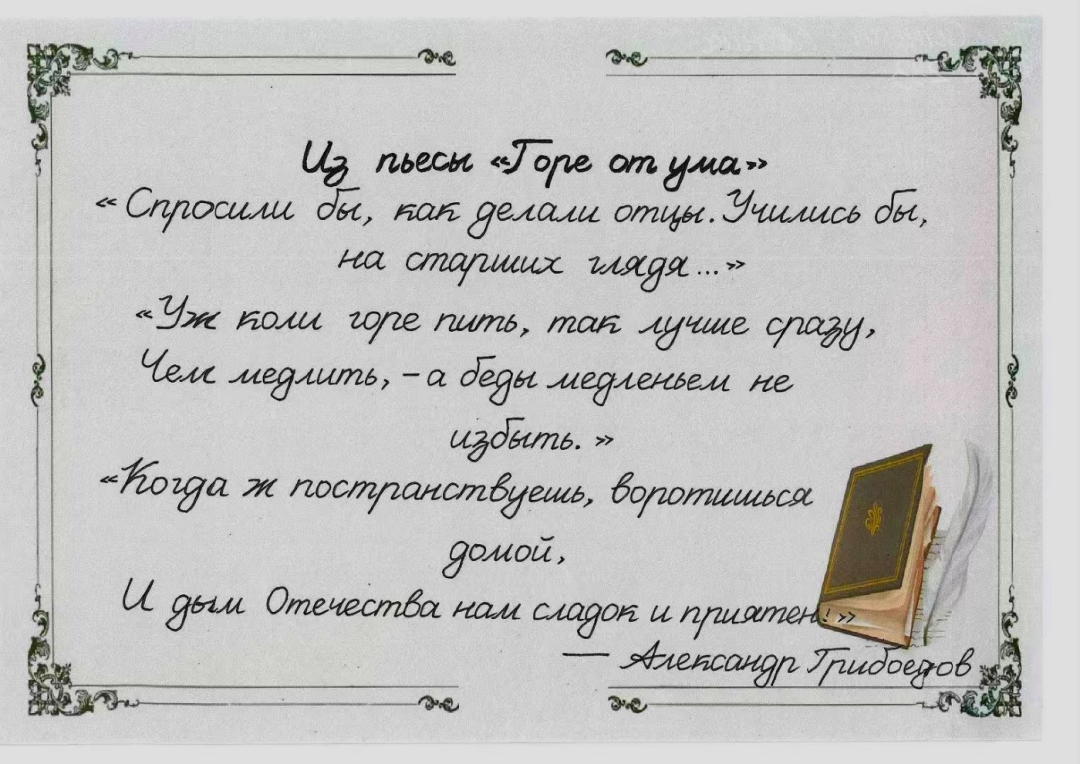 Из пьесы «Горе от ума»
« Спросили бы, как делали отцы. Учились бы,
на старших глядя...»
«Уж коли горе пить, так лучше сразу,
Чем медлить, – а беды медленьем не
избыть. »
«Когда ж постранствуешь, воротишься
домой,
И дым Отечества нам сладок и приятен! »
— Александр Грибоедов